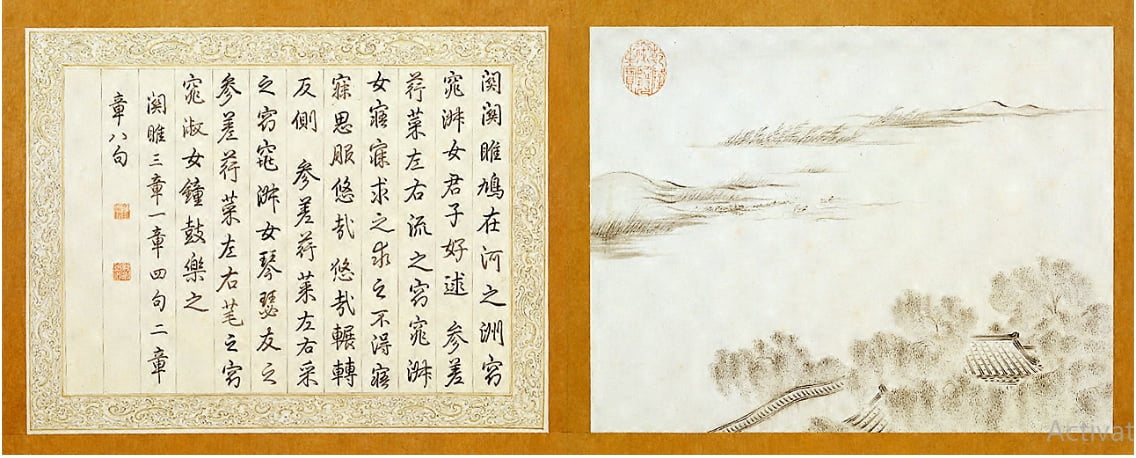 關關雎鳩在河之洲窈
窕淑女君子好逑 參差
荇菜左右流之窈窕淑
女寤寐求之求之不得寤
寐思服悠哉悠哉輾轉
反側 參差荇菜左右采
之窈窕淑女琴瑟友之
參差荇菜左右芼之窈
窕淑女鐘鼓樂之
關雎三章一章四句二章
章八句
Activat